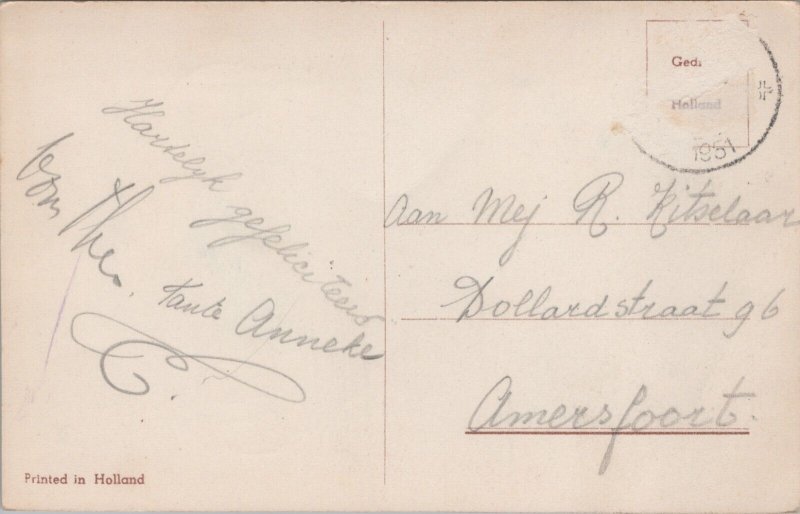 Hartelyk gefeliciteerd
Oom Theo.
tante Anneke
C.
Printed in Holland
Ged
Holland
1951
Aan Mej R. Kitselaar
Dollardstraat 96
Amersfoort.